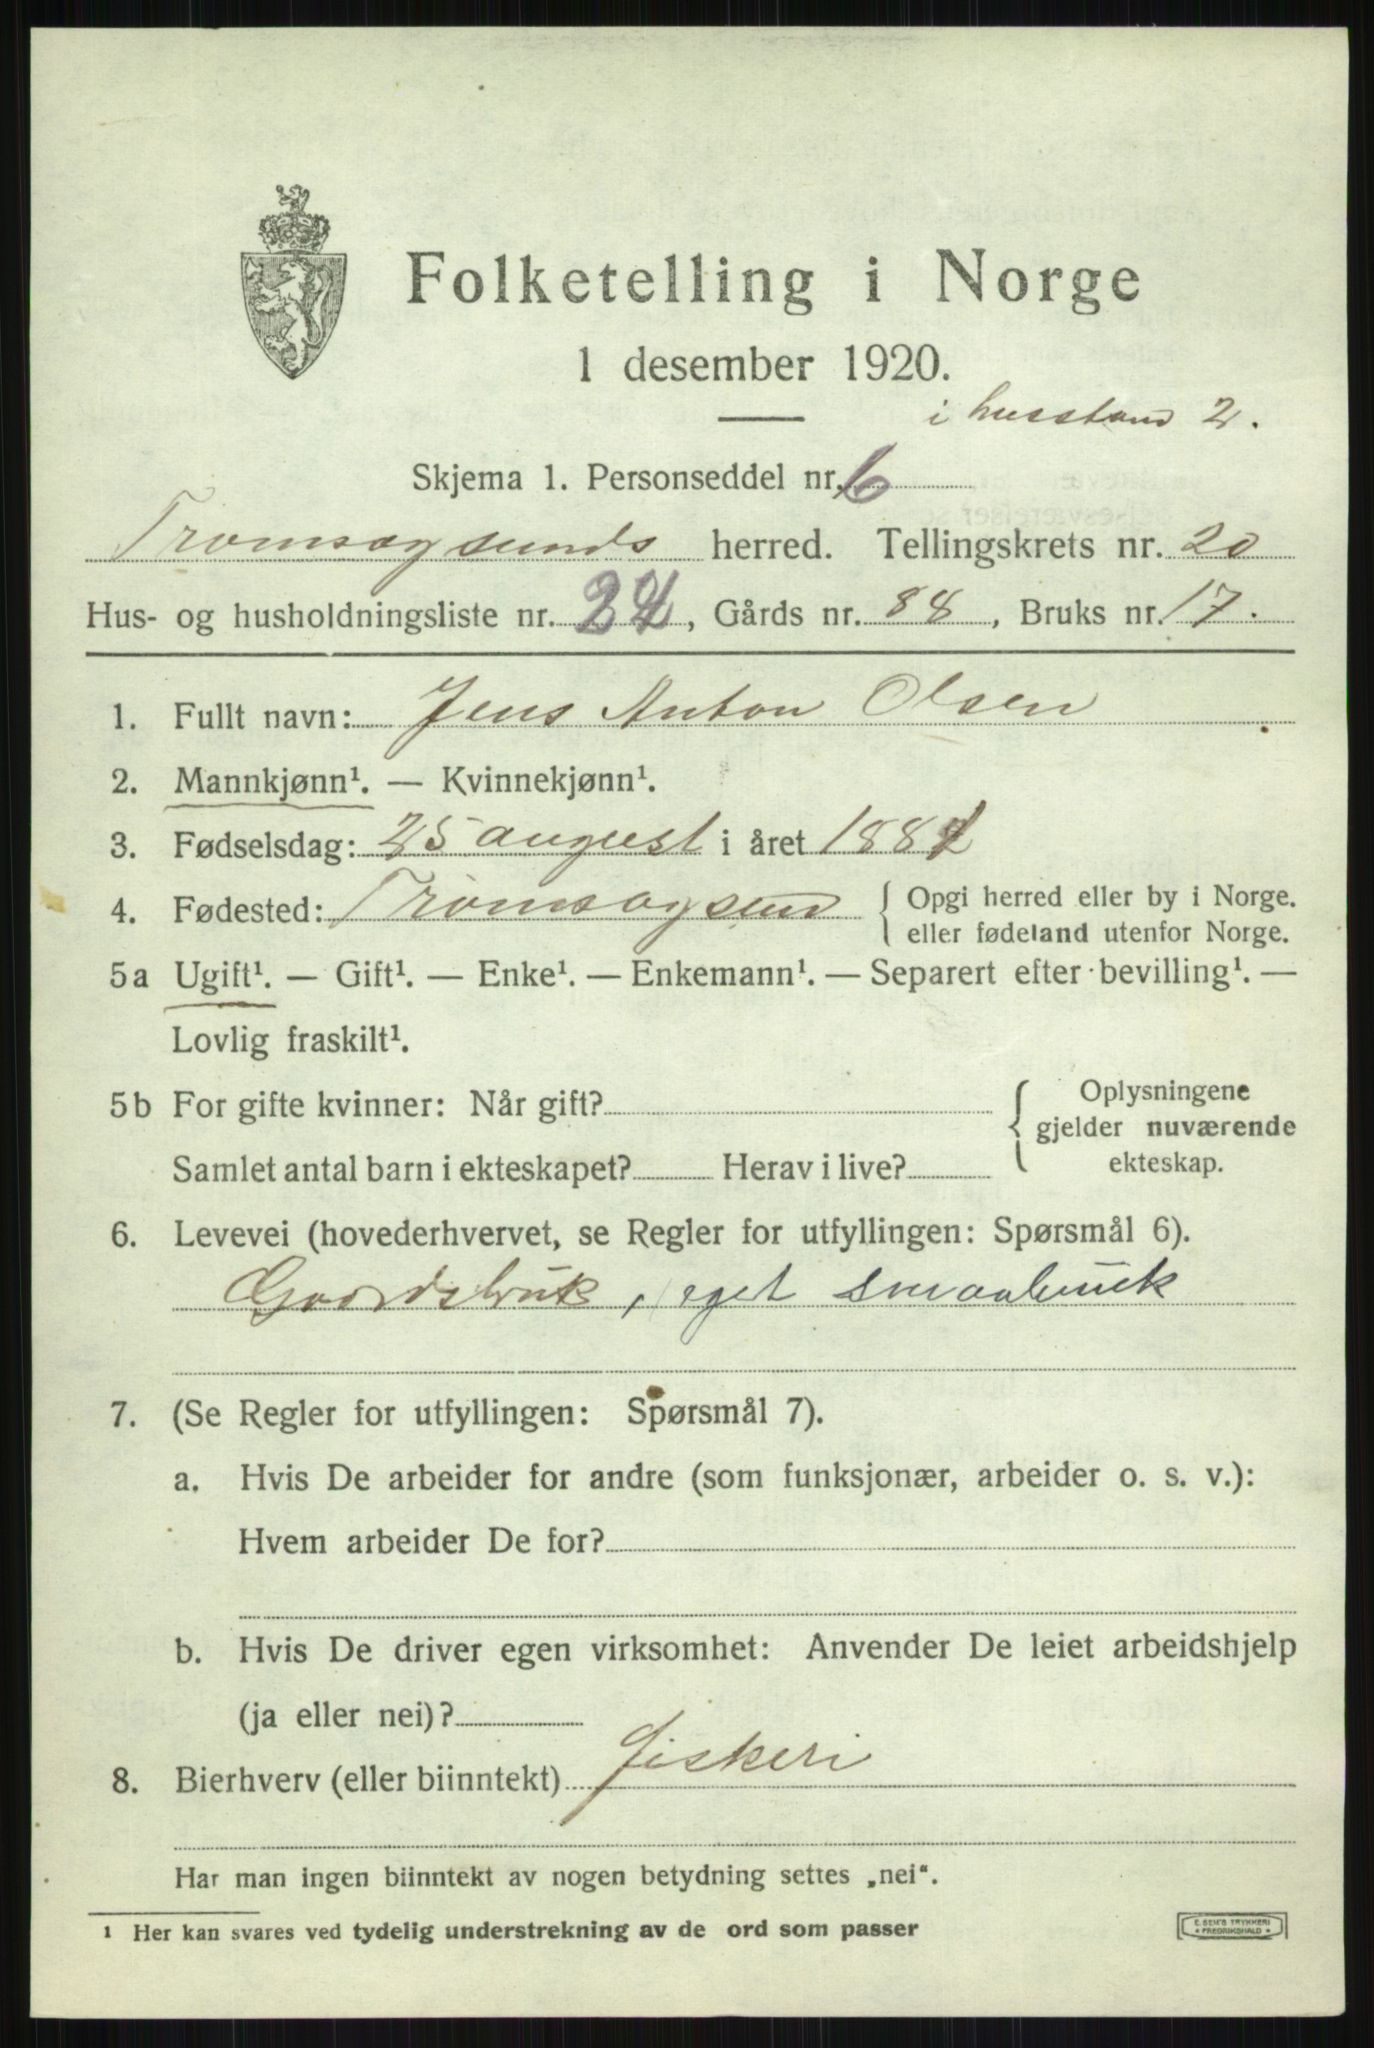 Folketelling i Norge
1 desember 1920.
i husstand 2.
Skjema 1. Personseddel nr. 6
Tromsøysunds herred. Tellingskrets nr. 20
Hus- og husholdningsliste nr. 24, Gårds nr. 88, Bruks nr. 17.
1. Fullt navn: Jens Anton Olsen
2. Mannkjønn¹. — Kvinnekjønn¹.
3. Fødselsdag: 25 august i året
4. Fødested: Tromsøysund { Opgi herred eller by i Norge.
eller fødeland utenfor Norge.
5a Ugift¹. — Gift¹. — Enke¹. — Enkemann¹. — Separert efter bevilling¹. —
Lovlig fraskilt¹.
5b For gifte kvinner: Når gift? { Oplysningene
gjelder nuværende
Samlet antal barn i ekteskapet? Herav i live? ekteskap.
6. Levevei (hovederhvervet, se Regler for utfyllingen: Spørsmål 6).
Gaardsbruk, eget smaabruk
7. (Se Regler for utfyllingen: Spørsmål 7).
a. Hvis De arbeider for andre (som funksjonær, arbeider o. s. v.):
Hvem arbeider De for?
b. Hvis De driver egen virksomhet: Anvender De leiet arbeidshjelp
(ja eller nei)?
8. Bierhverv (eller biinntekt) Fiskeri
Har man ingen biinntekt av nogen betydning settes „nei“.
¹ Her kan svares ved tydelig understrekning av de ord som passer
E. SEM'S TRYKKERI
FREDRIKSHALD